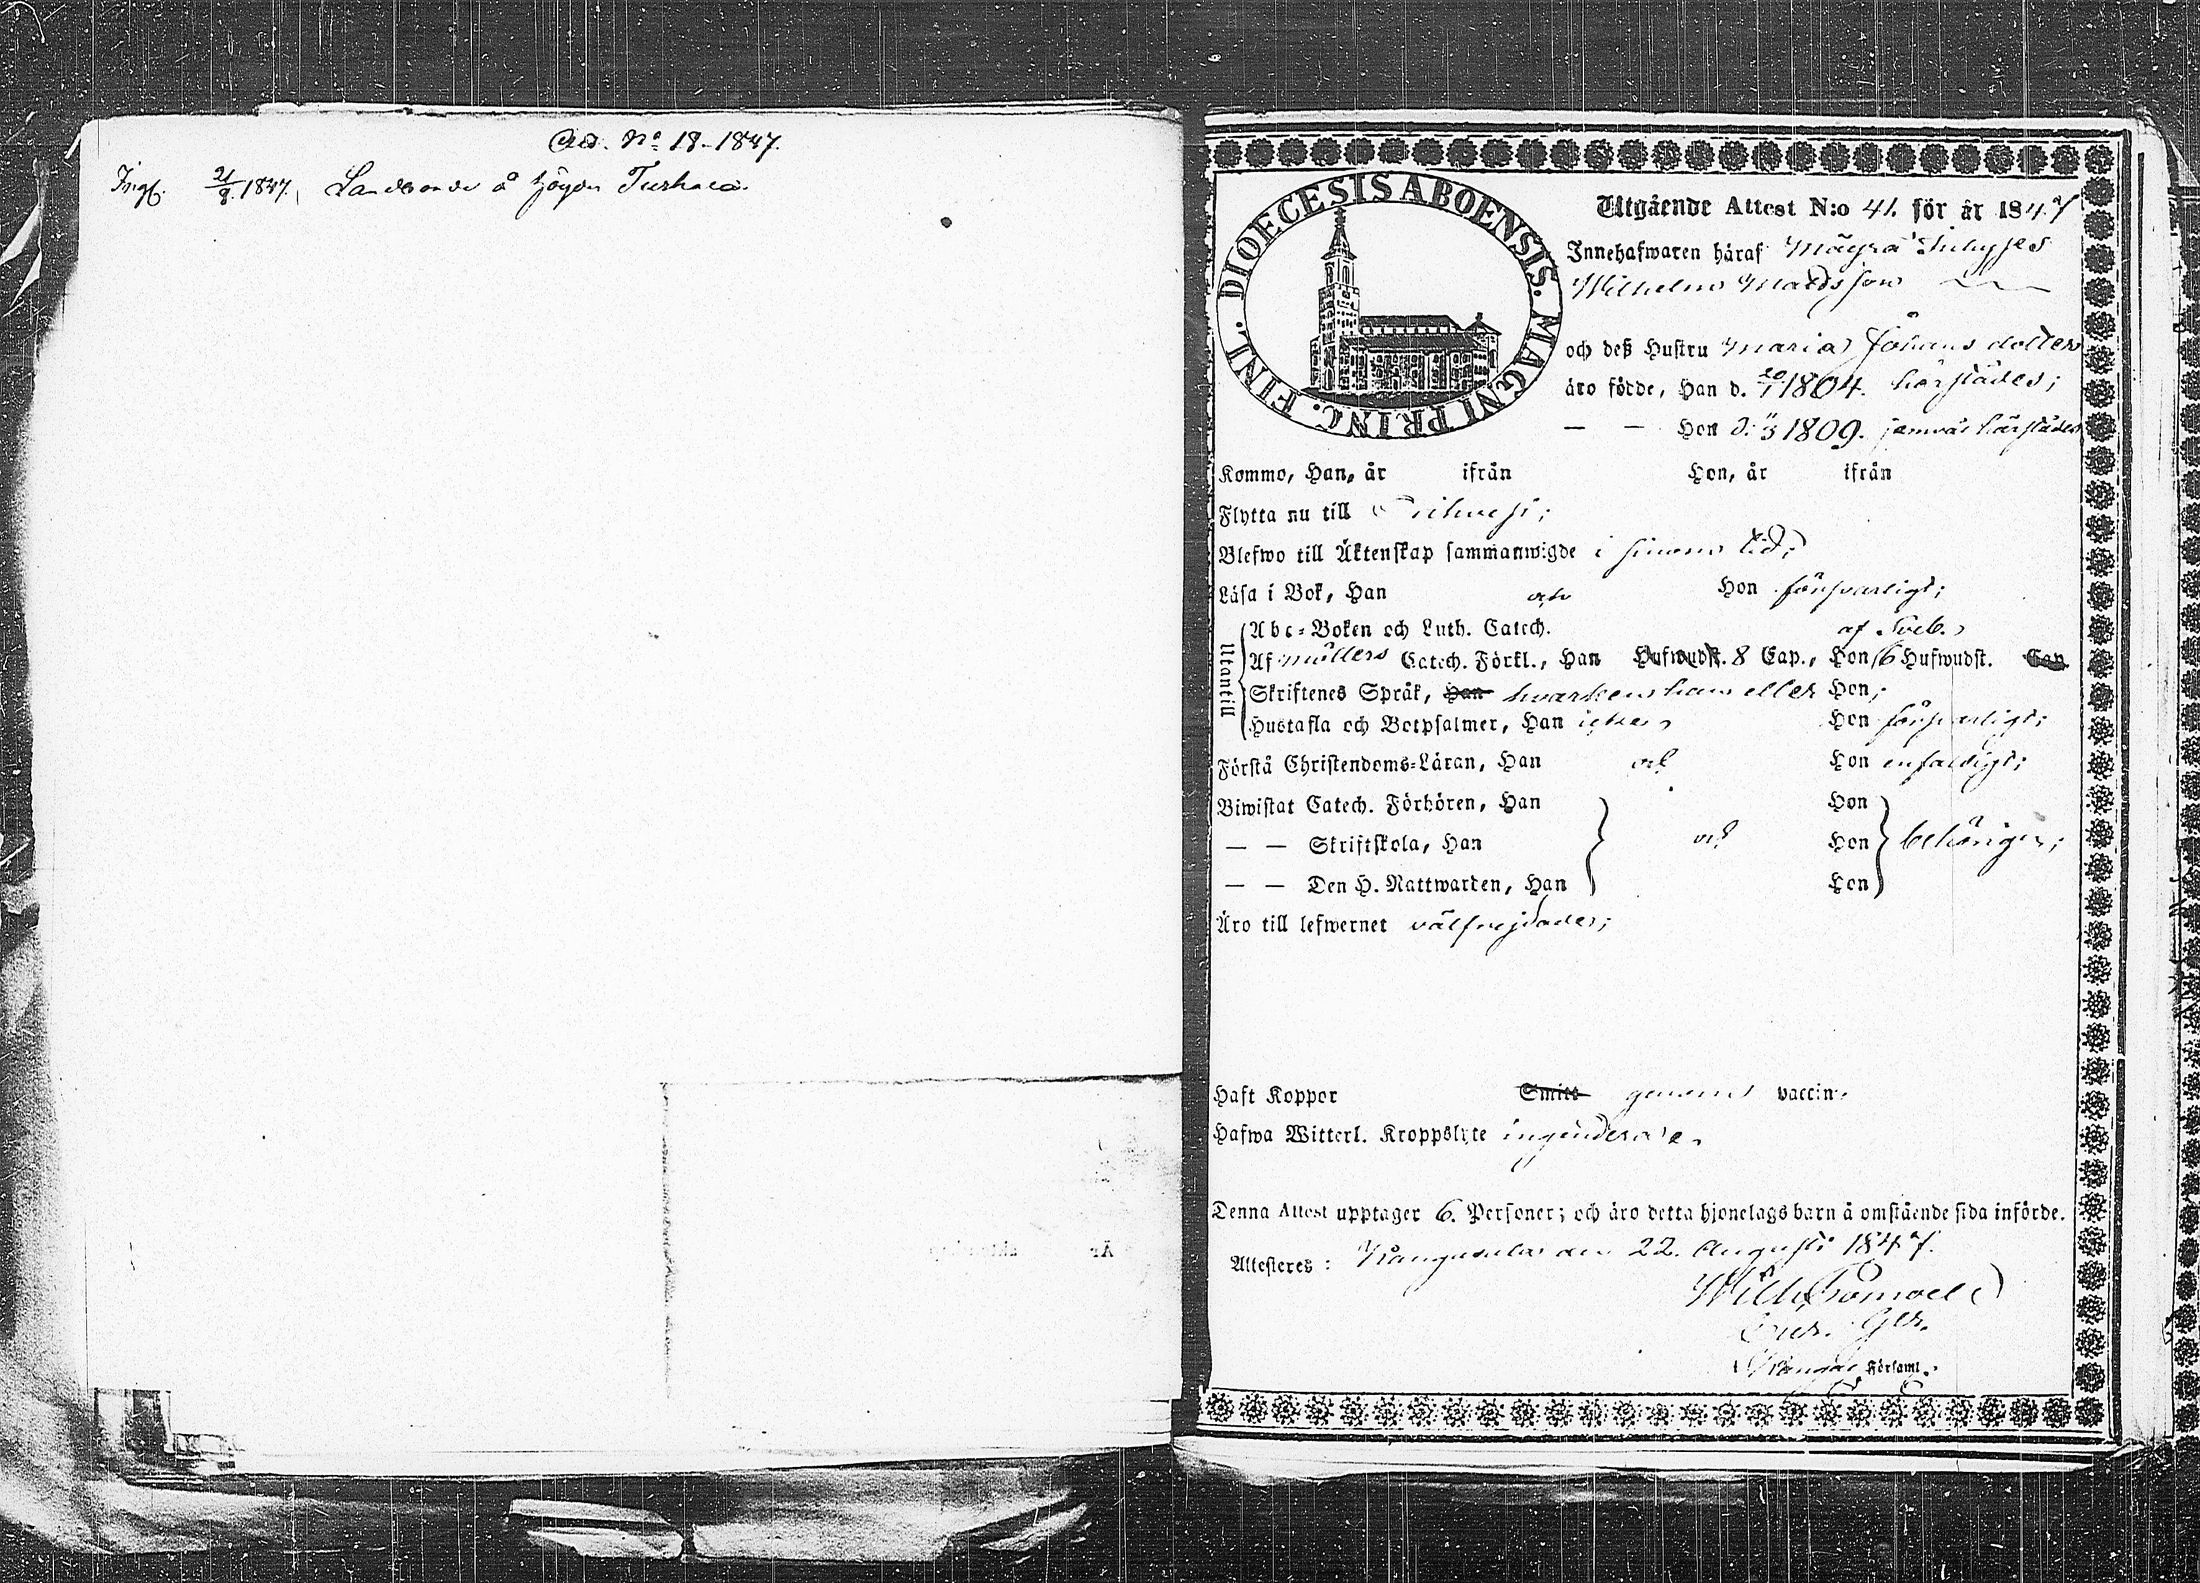 Ad. No 18. 1847.
Ingf. 21/8. 1847., Landbonde å högen Turhala.
DIOECESIS ABOENSIS. MAGNI PRINC. FINL.
Utgående Attest N:o 41. för år 1847
Innehafwaren häraf Mäyrä
Wilhelm Matdsson
och deß Hustru Maria Johans dotter
äro födde, Han d. 20/1 1804. härstädes;
— — Hon d. 1809. jemväl härstädes
Komme, Han, år ifrån Hon, år ifrån
Flytta nu till
Blefwo till Äktenskap sammanwigde i sinom tid;
Läsa i Bok, Han och Hon försvarligt;
Utantill
Abc-Boken och Luth. Catech. af Sveb.
Af Möllers Catech. Förkl., Han Hufwudst. 8 Cap., Hon 6 Hufwudst. Cap.
Skriftenes Språk, Han hvarken han eller Hon;
Hustafla och Botpsalmer, Han icke, Hon försvarligt;
Förstå Christendoms-Läran, Han och Hon enfaldigt;
Biwistat Catech. Förhören, Han Hon
— — Skriftskola, Han och Hon behörigen;
— — Den H. Nattwarden, Han Hon
Äro till lefwernet välfrejdade;
Haft Koppor Smitt genom vaccin.
Hafwa Witterl. Kroppslyte ingendera.
Denna Attest upptager 6. Personer; och äro detta hjonelags barn å omstående sida införde.
Attesteres: Kangasala den 22. Augusti 1847.
Wilh.
i Församl.